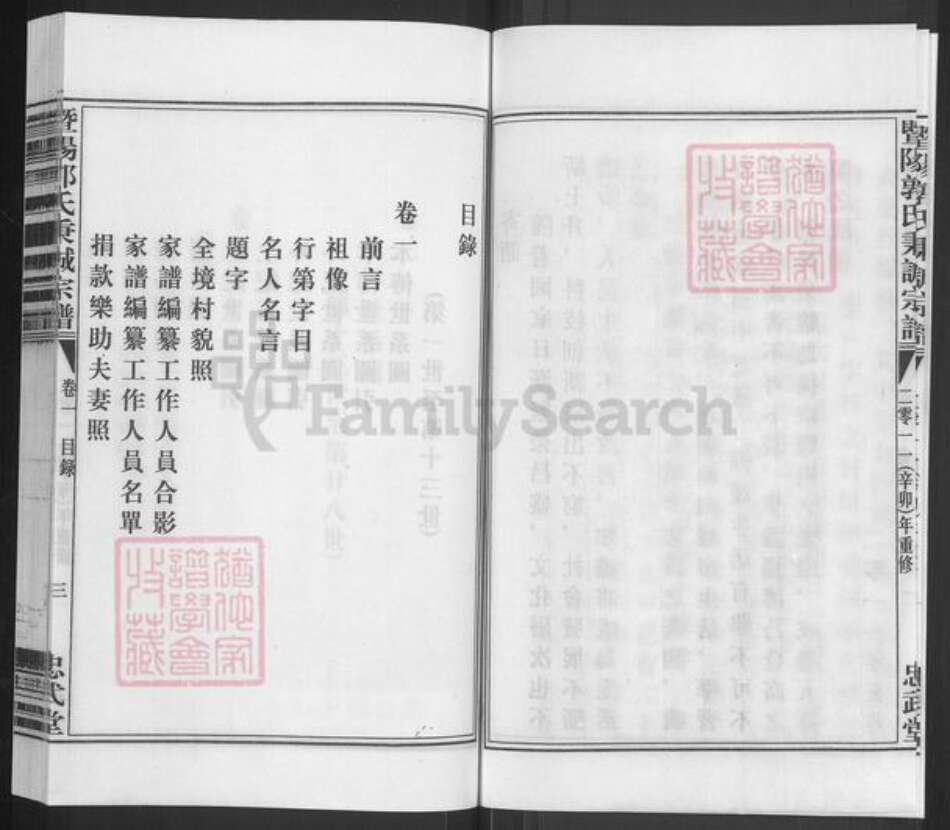 暨陽郭氏秉誠宗譜
二零一一(辛卯)年重修
忠武堂
目錄
卷一
前言
祖像
行第字目
名人名言
題字
全境村貌照
家譜編纂工作人員合影
家譜編纂工作人員名單
捐款樂助夫妻照
暨陽郭氏秉誠宗譜
卷一
目錄
三
忠武堂
FamilySearch